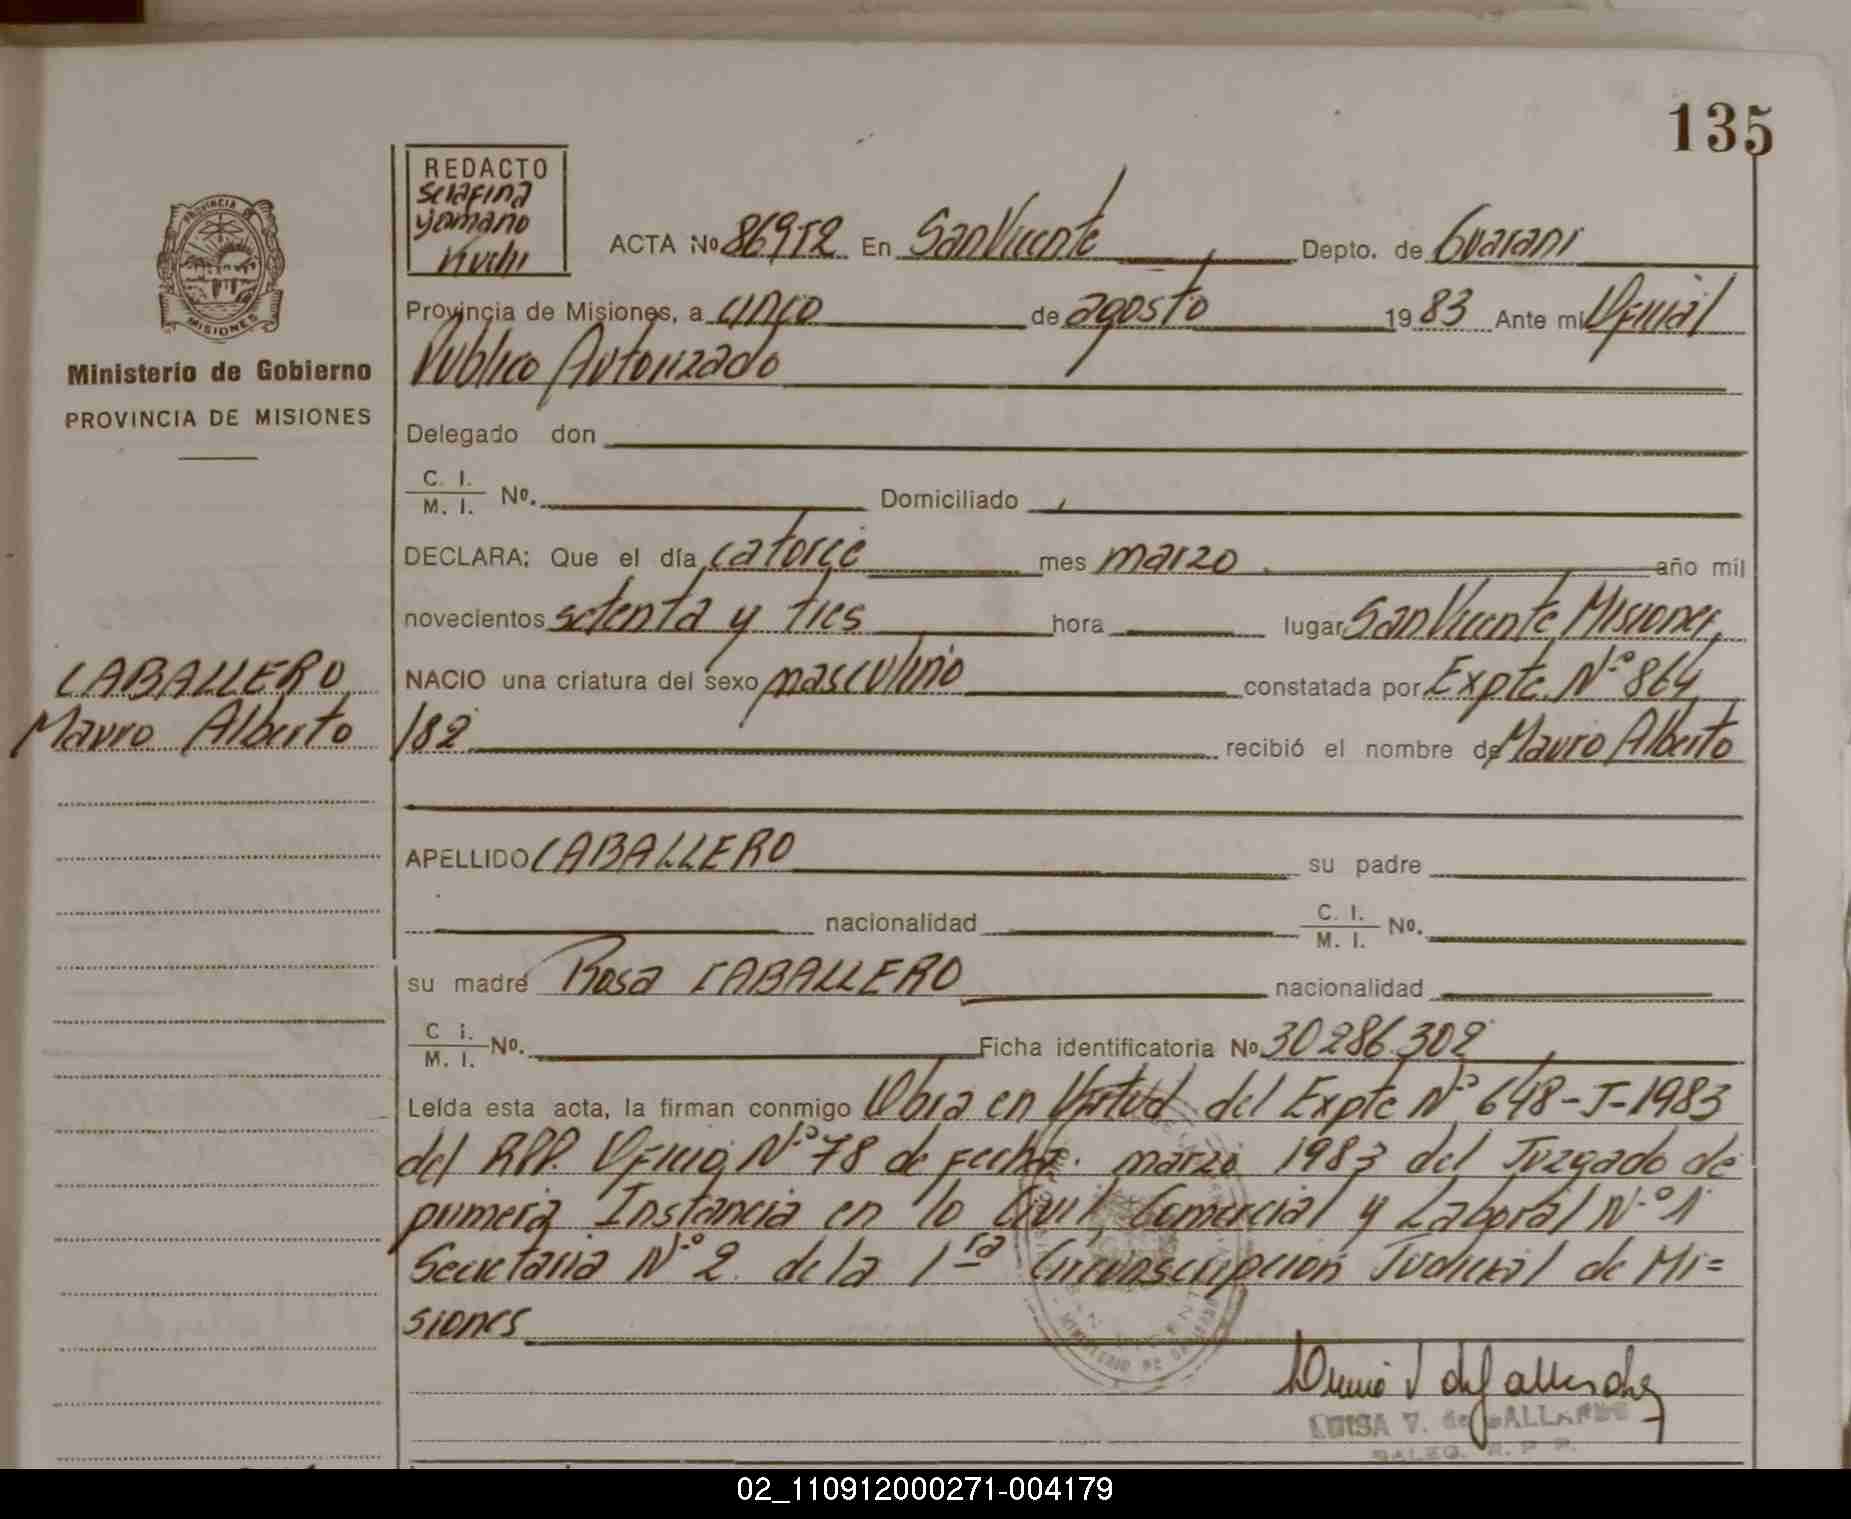 135
REDACTO
Serafina
Yamano
PROVINCIA
MISIONES
ACTA Nº 86952 En San Vicente Depto. de Guarani
Provincia de Misiones, a cinco de agosto 1983 Ante mi Oficial
Publico Autorizado
Ministerio de Gobierno
PROVINCIA DE MISIONES
Delegado don
C. I.
M. I. Nº. Domiciliado
DECLARA: Que el día catorce mes marzo año mil
novecientos setenta y tres hora lugar San Vicente Misiones,
NACIO una criatura del sexo masculino constatada por Expte. Nº 864
/82 recibió el nombre de Mauro Alberto
CABALLERO
Mauro Alberto
APELLIDO CABALLERO su padre
nacionalidad C. I.
M. I. Nº.
su madre Rosa CABALLERO nacionalidad
C i.
M. I. Nº. Ficha identificatoria Nº 30286.302
Leída esta acta, la firman conmigo Obra en Virtud del Expte Nº 648-J-1983
del RPP. Oficio Nº 78 de fecha. marzo 1983 del Juzgado de
primera Instancia en lo Civil Comercial y Laboral Nº 1
Secretaria Nº 2 de la 1ra Circunscripcion Judicial de Mi=
siones
LUISA V. de GALLARDO
R. P. P.
02_110912000271-004179